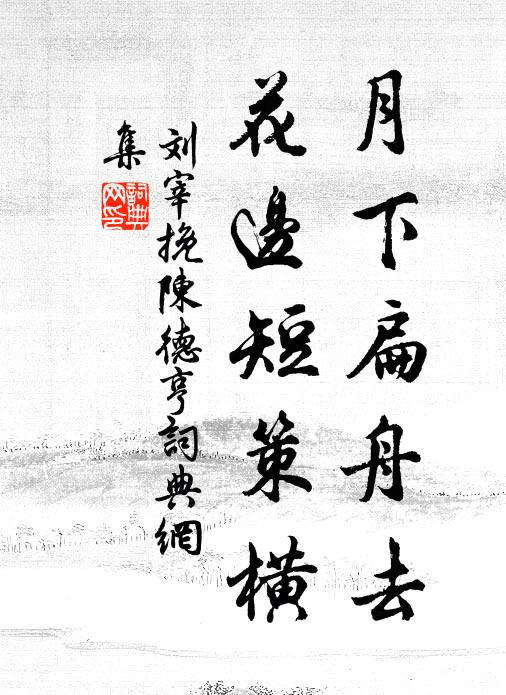 月下扁舟去
花邊短策橫
刘宰挽陳德亨詞典網
集
詞典網印